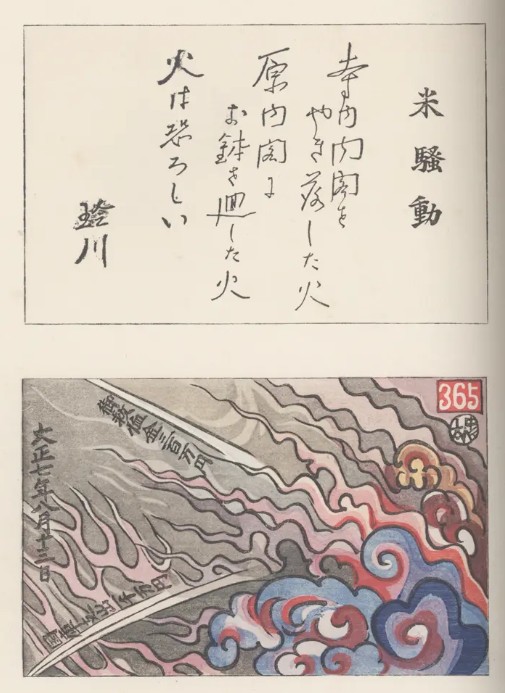 米騒動
寺内内閣を
やき落した火
原内閣に
お鉢を廻した火
火は恐ろしい
365
御救恤金三百万円
大正七年八月十三日
国庫ヨリ支出一千万円